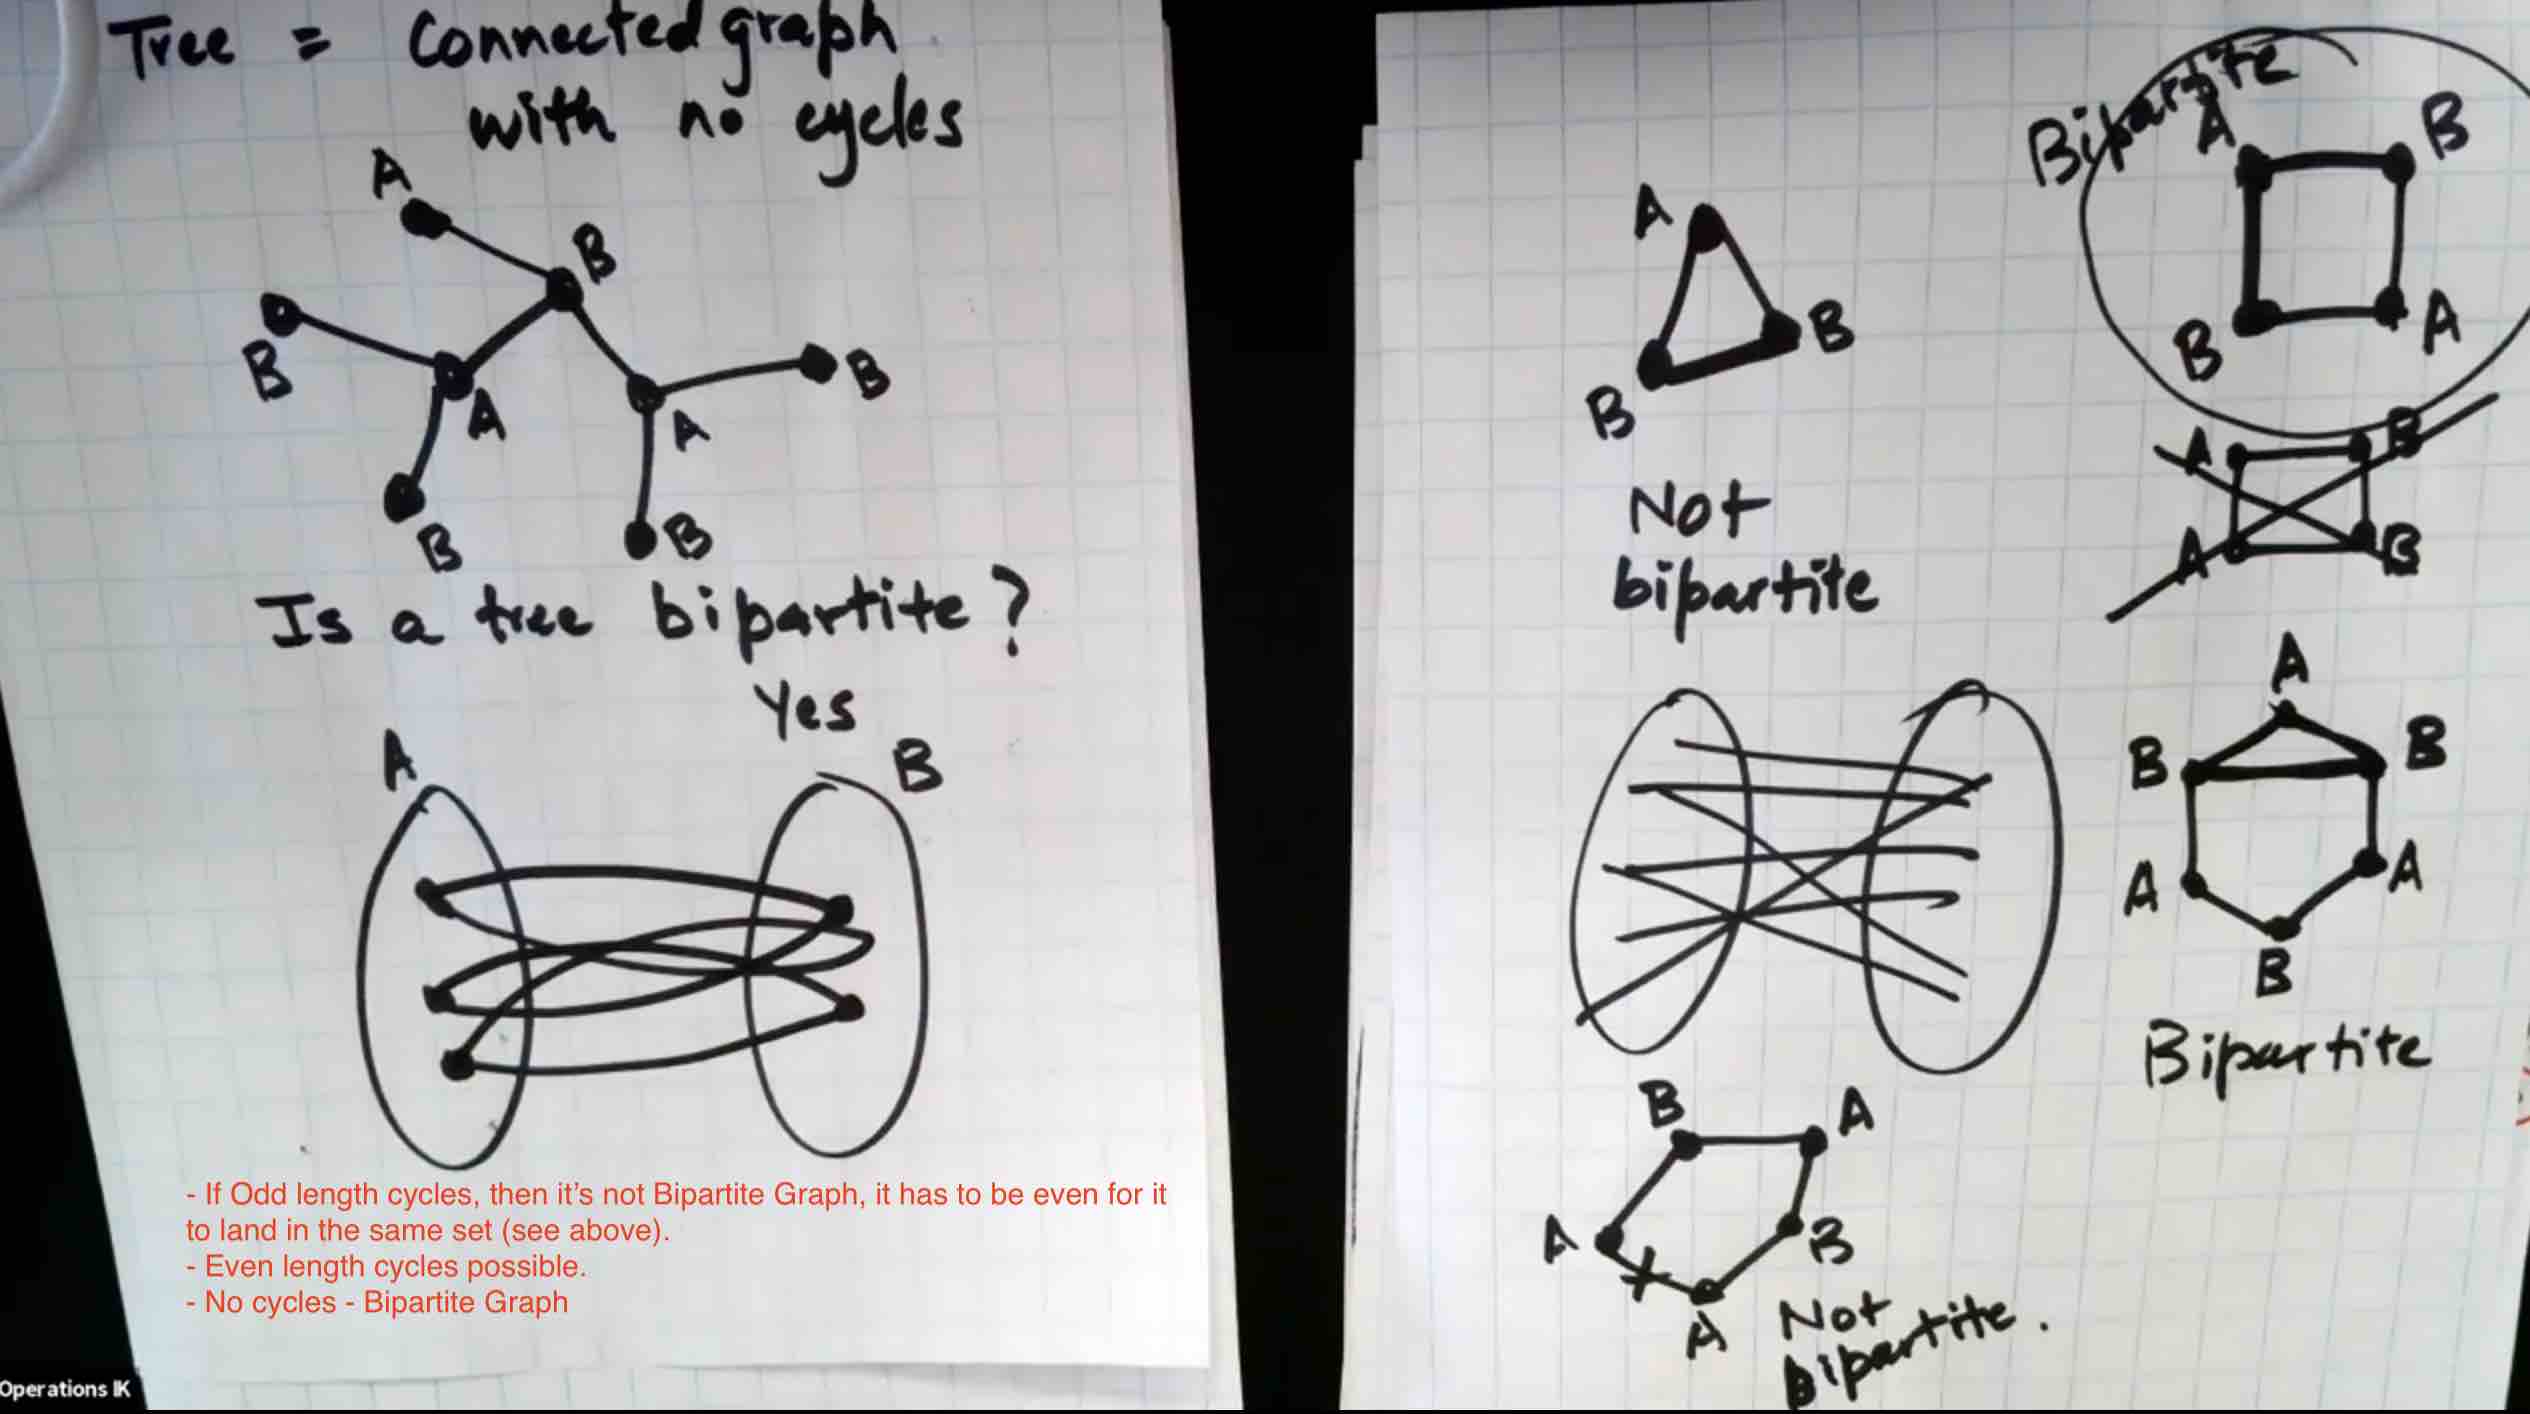 Tree = Connected graph
with no cycles
A
B
B
A
B
A
B
B
Is a tree bipartite?
Yes
A
B
- If Odd length cycles, then it's not Bipartite Graph, it has to be even for it
to land in the same set (see above).
- Even length cycles possible.
- No cycles - Bipartite Graph
Operations IK
Bipartite
A
B
B
A
A
B
B
Not
bipartite
A
B
A
B
A
B
B
A
A
B
Bipartite
B
A
A
B
A
Not
bipartite.